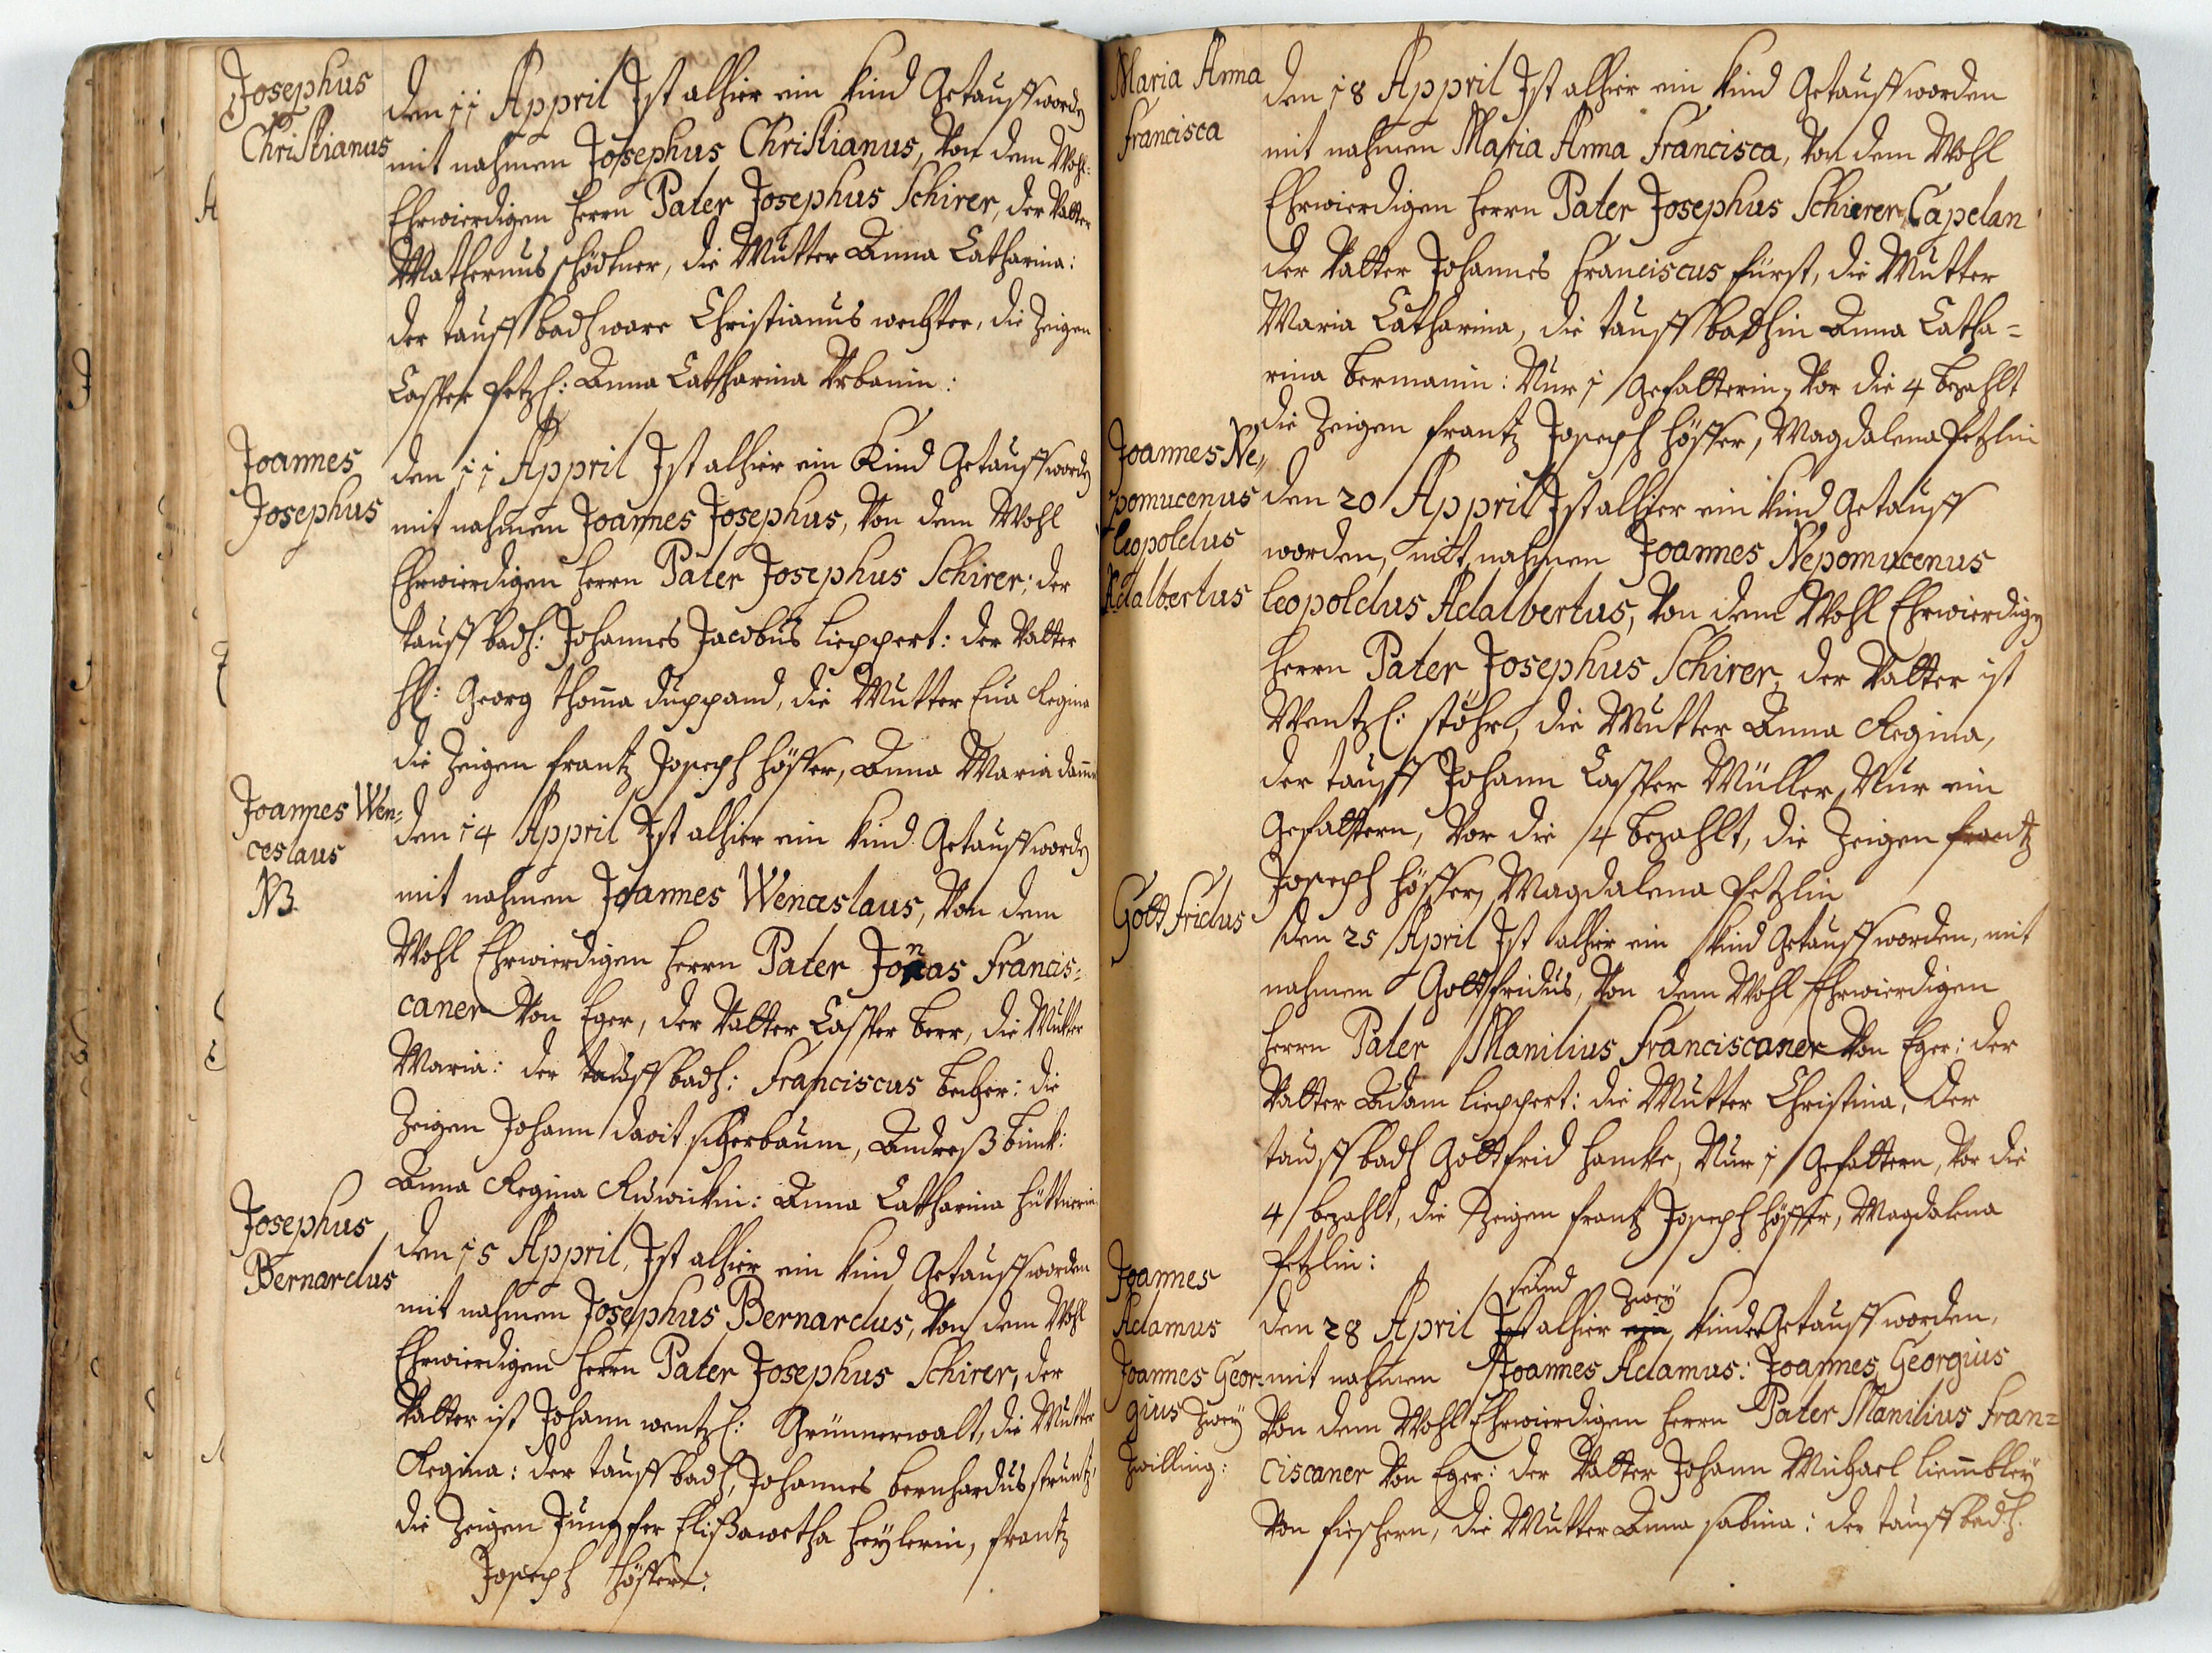 Josephus
Christianus
den 11 Appril Ist alhier ein kind Getaufft worden
mit nahmen Josephus Christianus, Von dem Wohl-
Ehrwierdigen Herrn Pater Josephus Schirer, der Vatter
Mathernus schödtner, die Mutter Anna Catharina:
der tauff badh ware Christianus wechter, die Zeigen
Casper Petzl: Anna Catharina Urbanin:
Joannes
Josephus
den 11 Appril Ist alhier ein Kind Getaufft worden
mit nahmen Joannes Josephus, Von dem Wohl
Ehrwierdigen Herrn Pater Josephus Schirer: der
tauff badh: Johannes Jacobus Lieppert: der Vatter
Hl: Georg thoma duppand, die Mutter Eua Regina
die Zeigen frantz Joseph Höffer, Anna Maria
Joannes Wen=
ceslaus
NB
den 14 Appril Ist alhier ein kind Getaufft worden
mit nahmen Joannes Wenceslaus, Von dem
Wohl Ehrwierdigen Herrn Pater Jonas Francis=
caner Von Eger, der Vatter Casper berr, die Mutter
Maria: der tauff badh: Franciscus becher: die
Zeigen Johann davit scherbaum, Andreß bink:
Anna Regina: Anna Catharina Hüttnerin
Josephus
Bernardus
den 15 Appril, Ist alhier ein kind Getaufft worden
mit nahmen Josephus Bernardus, Von dem Wohl
Ehrwierdigen Herrn Pater Josephus Schirer, der
Vatter ist Johann wentzl: Grünnerwalt, die Mutter
Regina: der tauff badh, Johannes bernhardus struntz
die Zeigen Jungfer Elißawetha Heylerin, frantz
Joseph Höffer:
Maria Anna
Francisca
den 18 Appril Ist alhier ein kind Getaufft worden
mit nahmen Maria Anna Francisca, Von dem Wohl
Ehrwierdigen Herrn Pater Josephus Schierer Capelan
der Vatter Johannes Franciscus fürst, die Mutter
Maria Catharina, die tauff badhin Anna Catha=
rina bermanin: Nur 1 Gefatterin, Vor die 4 bezahlt
die Zeigen frantz Joseph Höffer, Magdalena Petzlin
Joannes Ne=
pomucenus
Leopoldus
Adalbertus
den 20 Appril Ist alhier ein kind Getaufft
worden, mit nahmen Joannes Nepomucenus
Leopoldus Adalbertus, Von dem Wohl Ehrwierdigen
Herrn Pater Josephus Schirer, der Vatter ist
Wentzl: stöhr, die Mutter Anna Regina,
der tauff Johann Casper Müller, Nur ein
Gefattern, Vor die 4 bezahlt, die Zeigen frantz
Joseph Höffer, Magdalena Petzlin
Gottfridus
den 25 April Ist alhier ein kind Getaufft worden, mit
nahmen Gottfridus, Von dem Wohl Ehrwierdigen
Herrn Pater Manilius Franciscaner Von Eger: der
Vatter Adam Lieppert: die Mutter Christina, der
tauff badh Gottfrid Hancke, Nur 1 Gefattern, Vor die
4 bezahlt, die Zeigen frantz Joseph Höffer, Magdalena
Petzlin:
Joannes
Adamus
Joannes Geor-
gius zwey
Zwilling:
seind zwey
den 28 April Ist alhier ein kinder Getaufft worden,
mit nahmen Joannes Adamus: Joannes Georgius
Von dem Wohl Ehrwierdigen Herrn Pater Manilius Fran=
ciscaner Von Eger: der Vatter Johann Michael
Von fischern, die Mutter Anna sabina: der tauff badh: